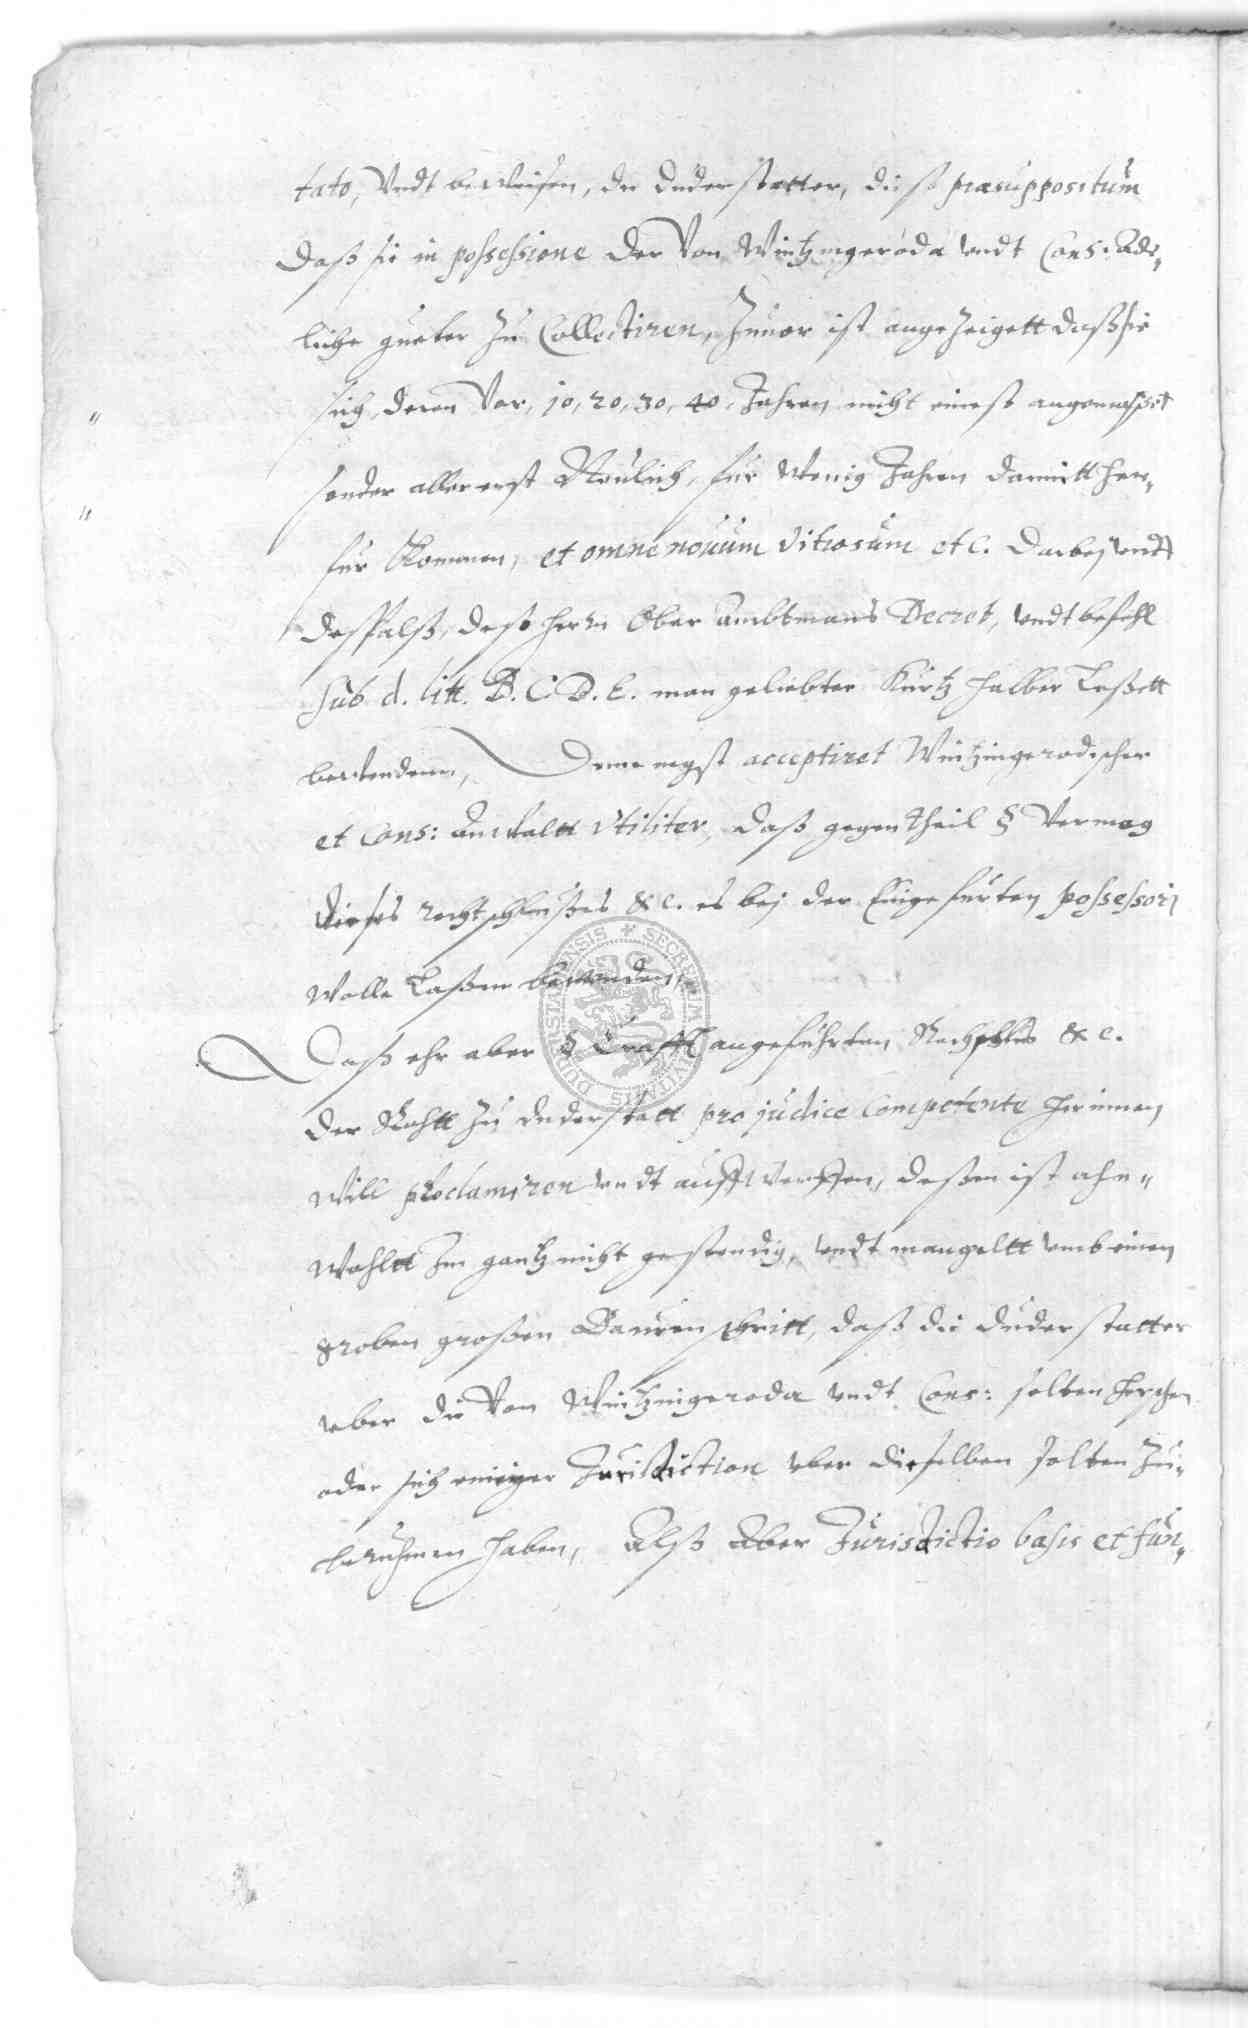 tato, Undt beweisen, die Duderstatter, dieß praesuppositum
Daß sie in possessione der Von Wintzingeroda undt Cons: Ade„
liche gueter zu Collectiren, Zuuor ist angezeigett daß sie
sich, deren Vor, 10, 20, 30, 40, Jahren nicht eineß angemasset
sonder allererst Neulich, fur wenig Jahren damitt her„
fur Kommen, et omne nouum Vitiosum etc. Darbej undt
deßfalß, deß herrn Ober Ambtmans Decret, undt befehl
sub d. litt. B. C. D. E. man geliebter Kürtz halber Laßett
bewenden, Deme negst acceptiret Wintzingerodischer
et Cons: Anwaltt Utiliter, daß gegentheil § Vermog
dieses rechtschlußes &c. es bej der Eingefurten possessorij
wolle Laßen bewenden,
Daß ehr aber § Crafft angefuhrten &c.
der Rahtt zu Duderstatt pro judice Competente herinnen
will proclamiren undt auffwerffen, deßen ist ahn„
wahltt Im gantz nicht gestendig, undt mangeltt umb einen
groben großen Bauren schritt, daß die Duderstatter
uber die Von Wintzingeroda undt Cons: solten herschen
oder sich einiger Jurisdiction uber dieselben solten zu„
beruhmen haben, Alß Aber Jurisdictio basis et fun„
SECRETUM CIVITATIS DUDERSTADENSIS